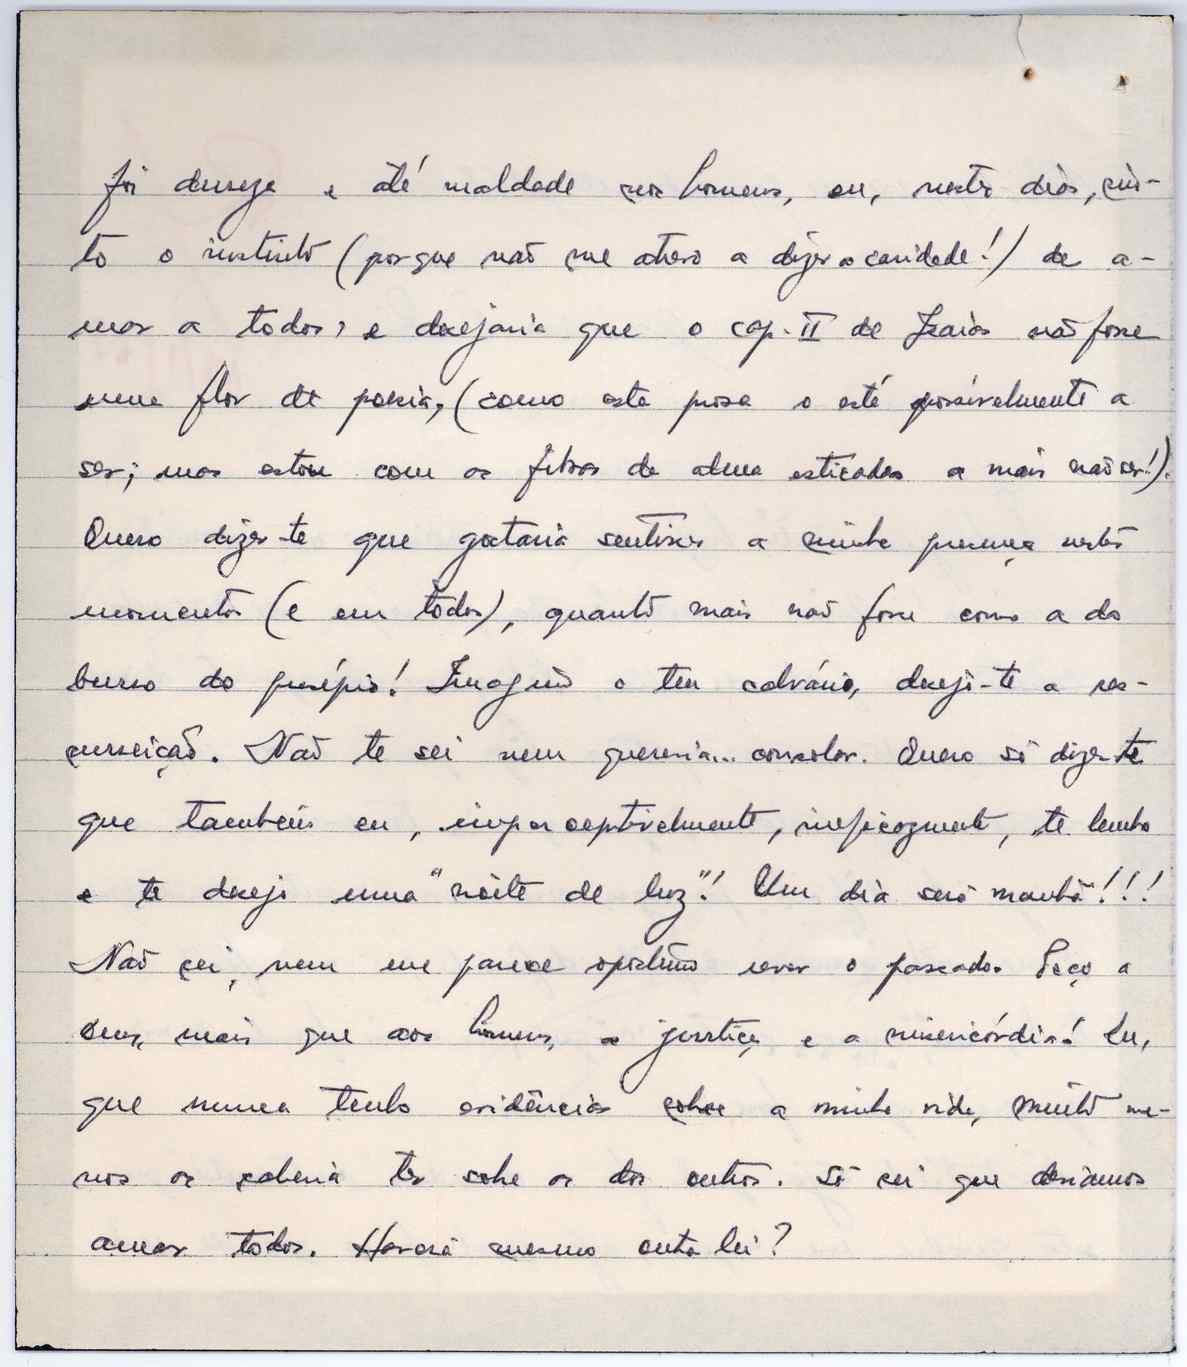 foi dureza e até maldade nos homens, eu, nestes dias, sin-
to o instinto (porque não me atrevo a dizer a caridade!) de a-
mar a todos, e desejaria que o cap. II de Isaías não fosse
uma flor de poesia, (como esta prosa o está possivelmente a
ser; mas estou com as fibras da alma esticadas a mais não ser!).
Quero dizer-te que gostaria sentisses a minha presença nestes
momentos (e em todos), quanto mais não fosse como a do
burro do presépio! Imagino o teu calvário, desejo-te a res-
surreição. Não te sei nem quereria... consolar. Quero só dizer-te
que também eu, imperceptivelmente, ineficazmente, te lembro
e te desejo uma "noite de luz"! Um dia será manhã!!!
Não sei, nem me parece rever o passado. Peço a
Deus, mais que aos homens, a justiça e a misericórdia! Eu,
que nunca tenho evidências sobre a minha vida, muito me-
nos as saberia ter sobre as dos outros. Só sei que devíamos
amar todos. Haverá mesmo outra lei?